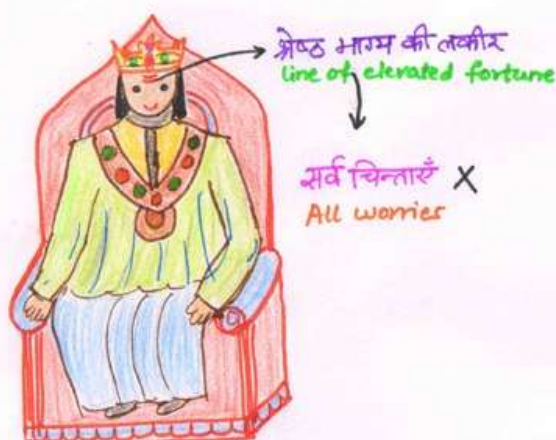 श्रेष्ठ भाग्य की लकीर
line of elevated fortune
सर्व चिन्ताएँ X
All worries